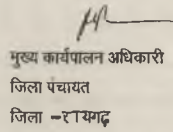 मुख्य कार्यपालन अधिकारी
जिला पंचायत
जिला -रायगढ़